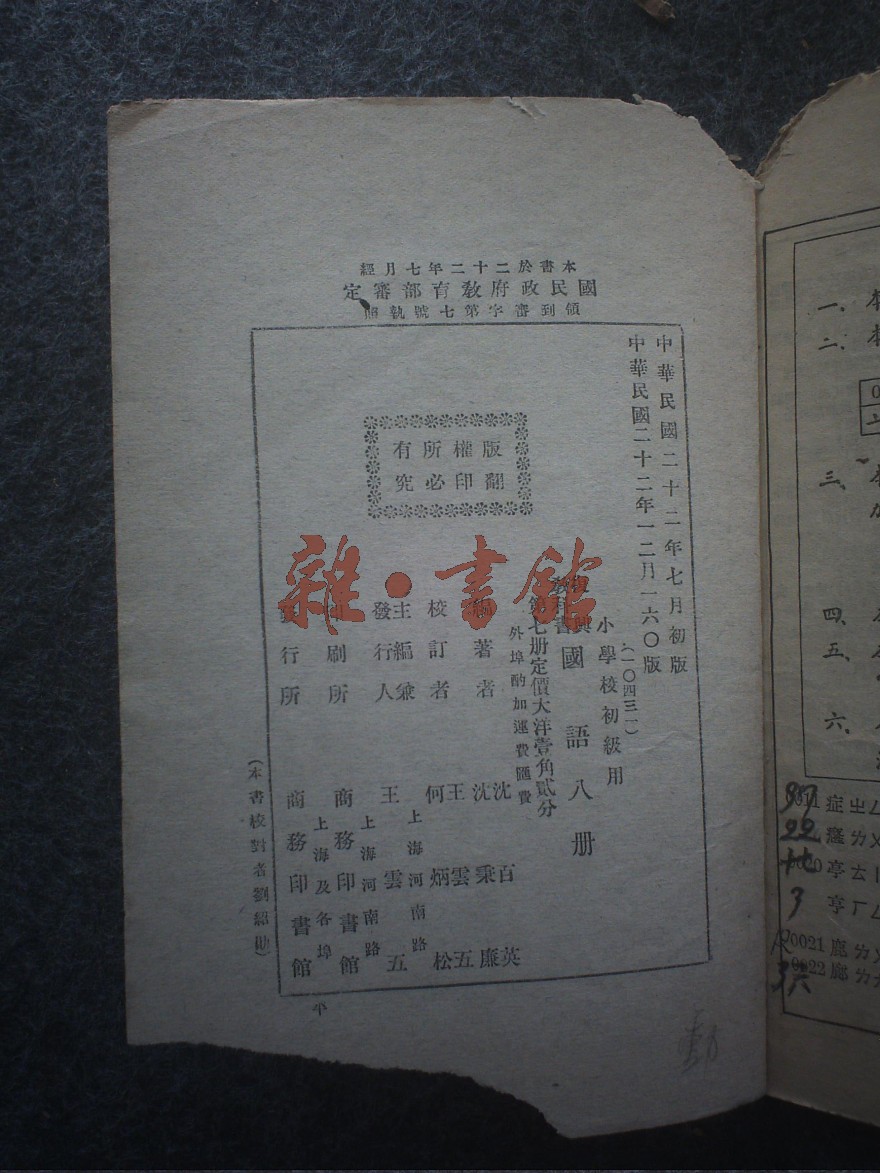 本書於二十二年七月經
國民政府教育部審定
領到審字第七號執照
中華民國二十二年七月初版
中華民國二十二年一二月一六〇版
(一〇四三一)
小學校初級用
復興
教科書
國語八册
第七册定價大洋壹角貳分
外埠酌加運費匯費
版權所有
翻印必究
編著者 沈百英
沈秉廉
校訂者 王雲五
何炳松
上海河南路
主編兼
發行人 王雲五
上海河南路
印刷所 商務印書館
上海及各埠
發行所 商務印書館
(本書校對者劉紹勛)
雜·書館
一、
二、
三、
四、
五、
六、
症
亭
亨
0021 鹿
0022 廊